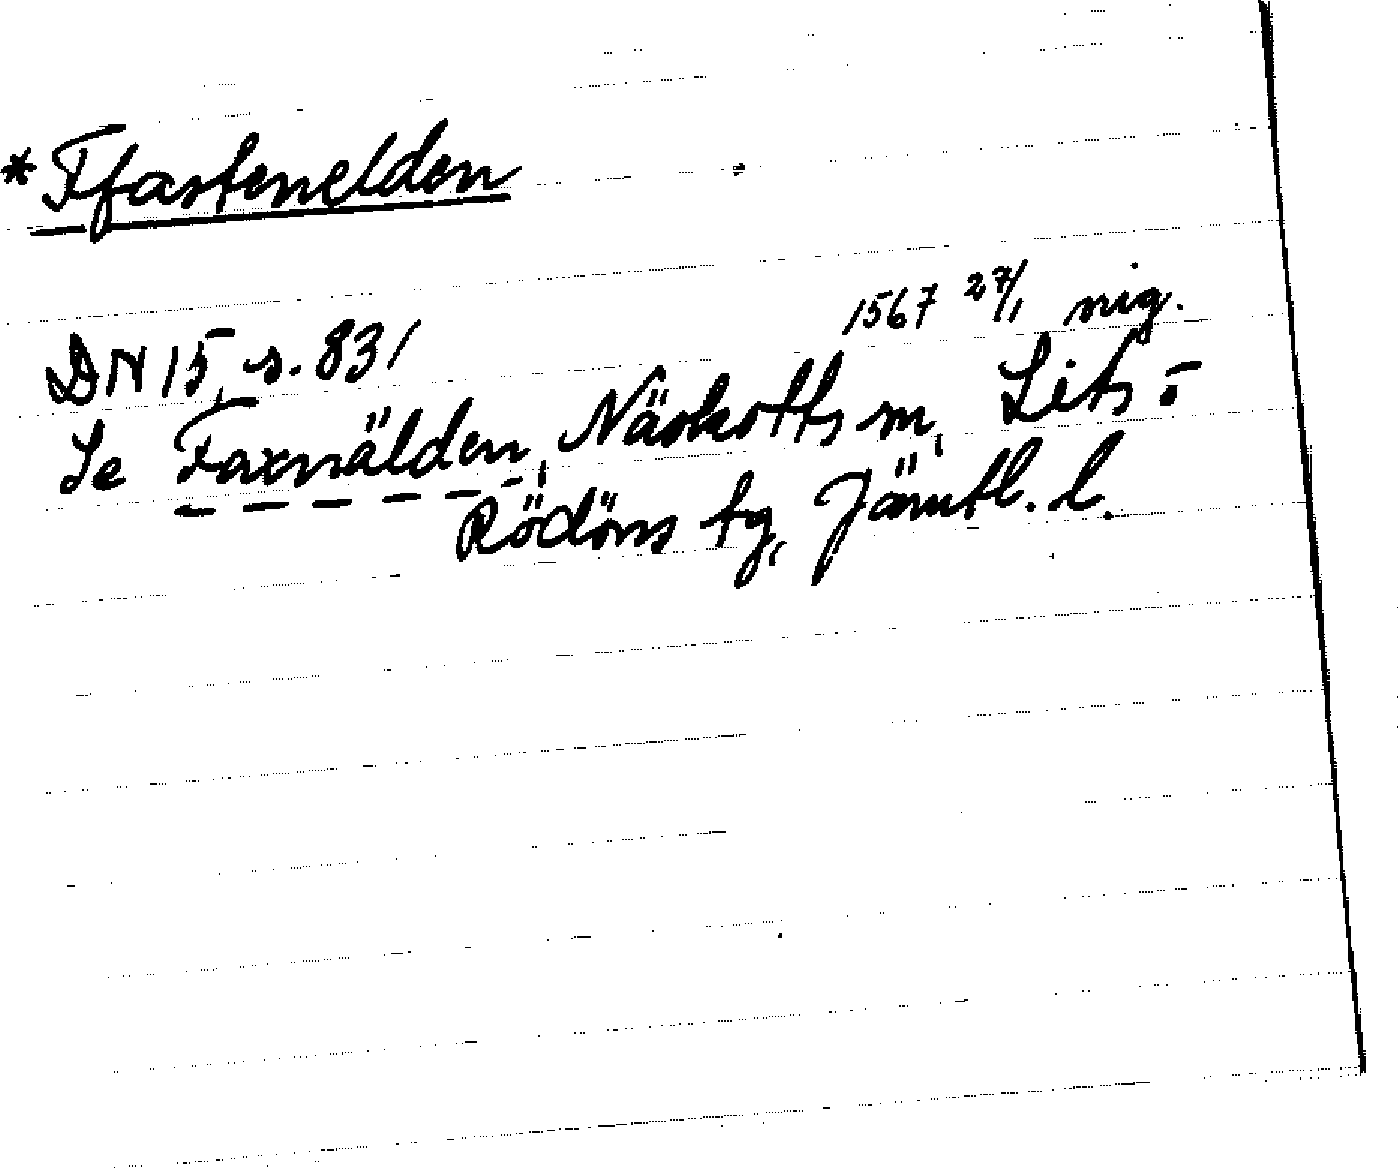 *Ffastenelden
1567 27/1 nig.
DN 15, s. 831
Se Faxnälden, Näskotts sn, Lits o
Rödöns tg, Jämtl. l.